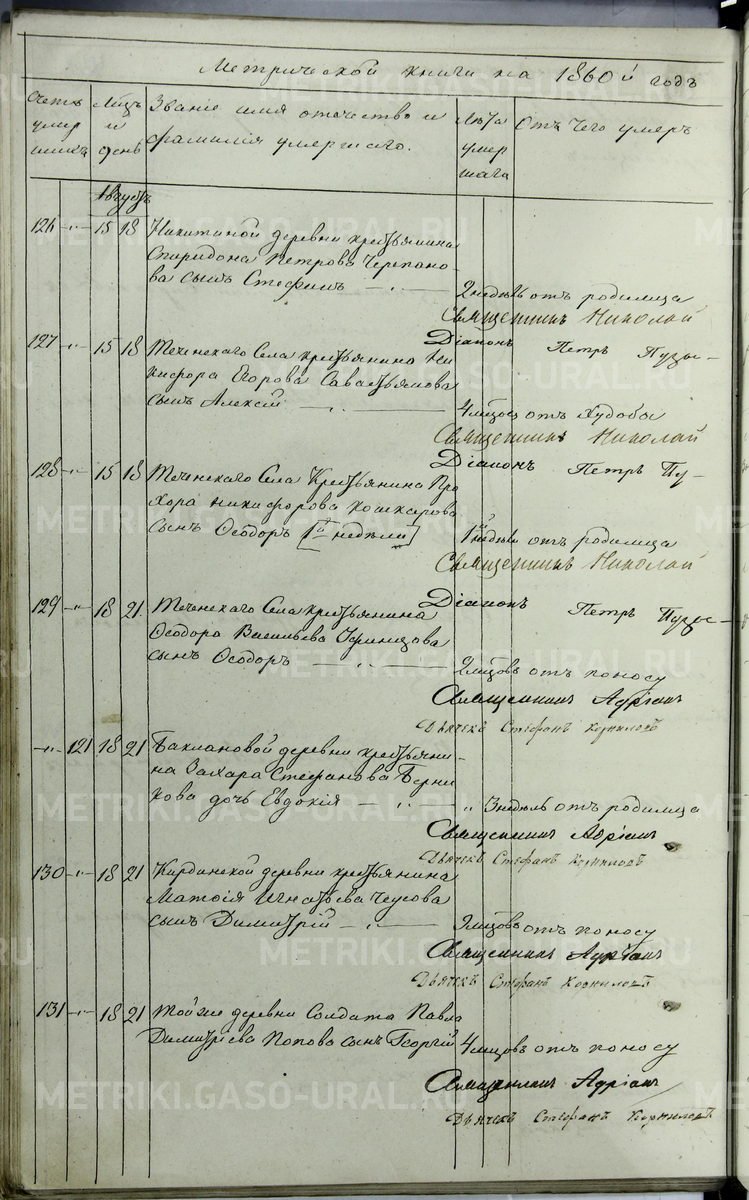 Метрической книги на 1860й годъ
Счетъ умер шихъ
Мцъ и день
Званіе имя отчество и фамилія умершаго.
Лѣта умер шаго
Отъ чего умеръ
Августъ
126 -"- 15 18 Никитиной деревни крестьянина
Спиридона Петрова Черепано-
ва сынъ Стефанъ -"-
2 недѣль отъ родимца
Священникъ Николай
Діаконъ Петръ Пузы-
127 -"- 15 18 Теченскаго Села крестьянина Ни
кифора Егорова Савастьянова
сынъ Алексій -"-
4 мцов отъ худобы
Священникъ Николай
Діаконъ Петръ Пу-
128 -"- 15 18 Теченскаго Села Крестьянина Про
хора Никифорова Кошкарова
сынъ Ѳеодоръ [1й недѣли]
1й недѣли отъ родимца
Священникъ Николай
Діаконъ Петръ Пузы-
129 -"- 18 21. Теченскаго Села крестьянина
Ѳеодора Васильева
сынъ Ѳеодоръ -"-
2 мцовъ отъ поносу
Священникъ Адріанъ
Дьячекъ Стефанъ Корниловъ
-"- 121 18 21 Баклановой деревни крестьяни-
на Захара Стефанова Берни
кова дочь Евдокія -"-
" 3 недѣль отъ родимца
Священникъ Адріанъ
Дьячекъ Стефанъ Корниловъ
130 -"- 18 21 Кирдинской деревни крестьянина
Матѳія Игнатьева Чеусова
сынъ Димитрій -"-
2 мцовъ отъ поносу
Священникъ Адріанъ
Дьячекъ Стефанъ Корниловъ
131 -"- 18 21 Той же деревни Солдата Павла
Димитріева Попова сынъ Георгій
4 мцовъ отъ поносу
Священникъ Адріанъ
Дьячекъ Стефанъ Корниловъ
METRIKI.GASO-URAL.RU